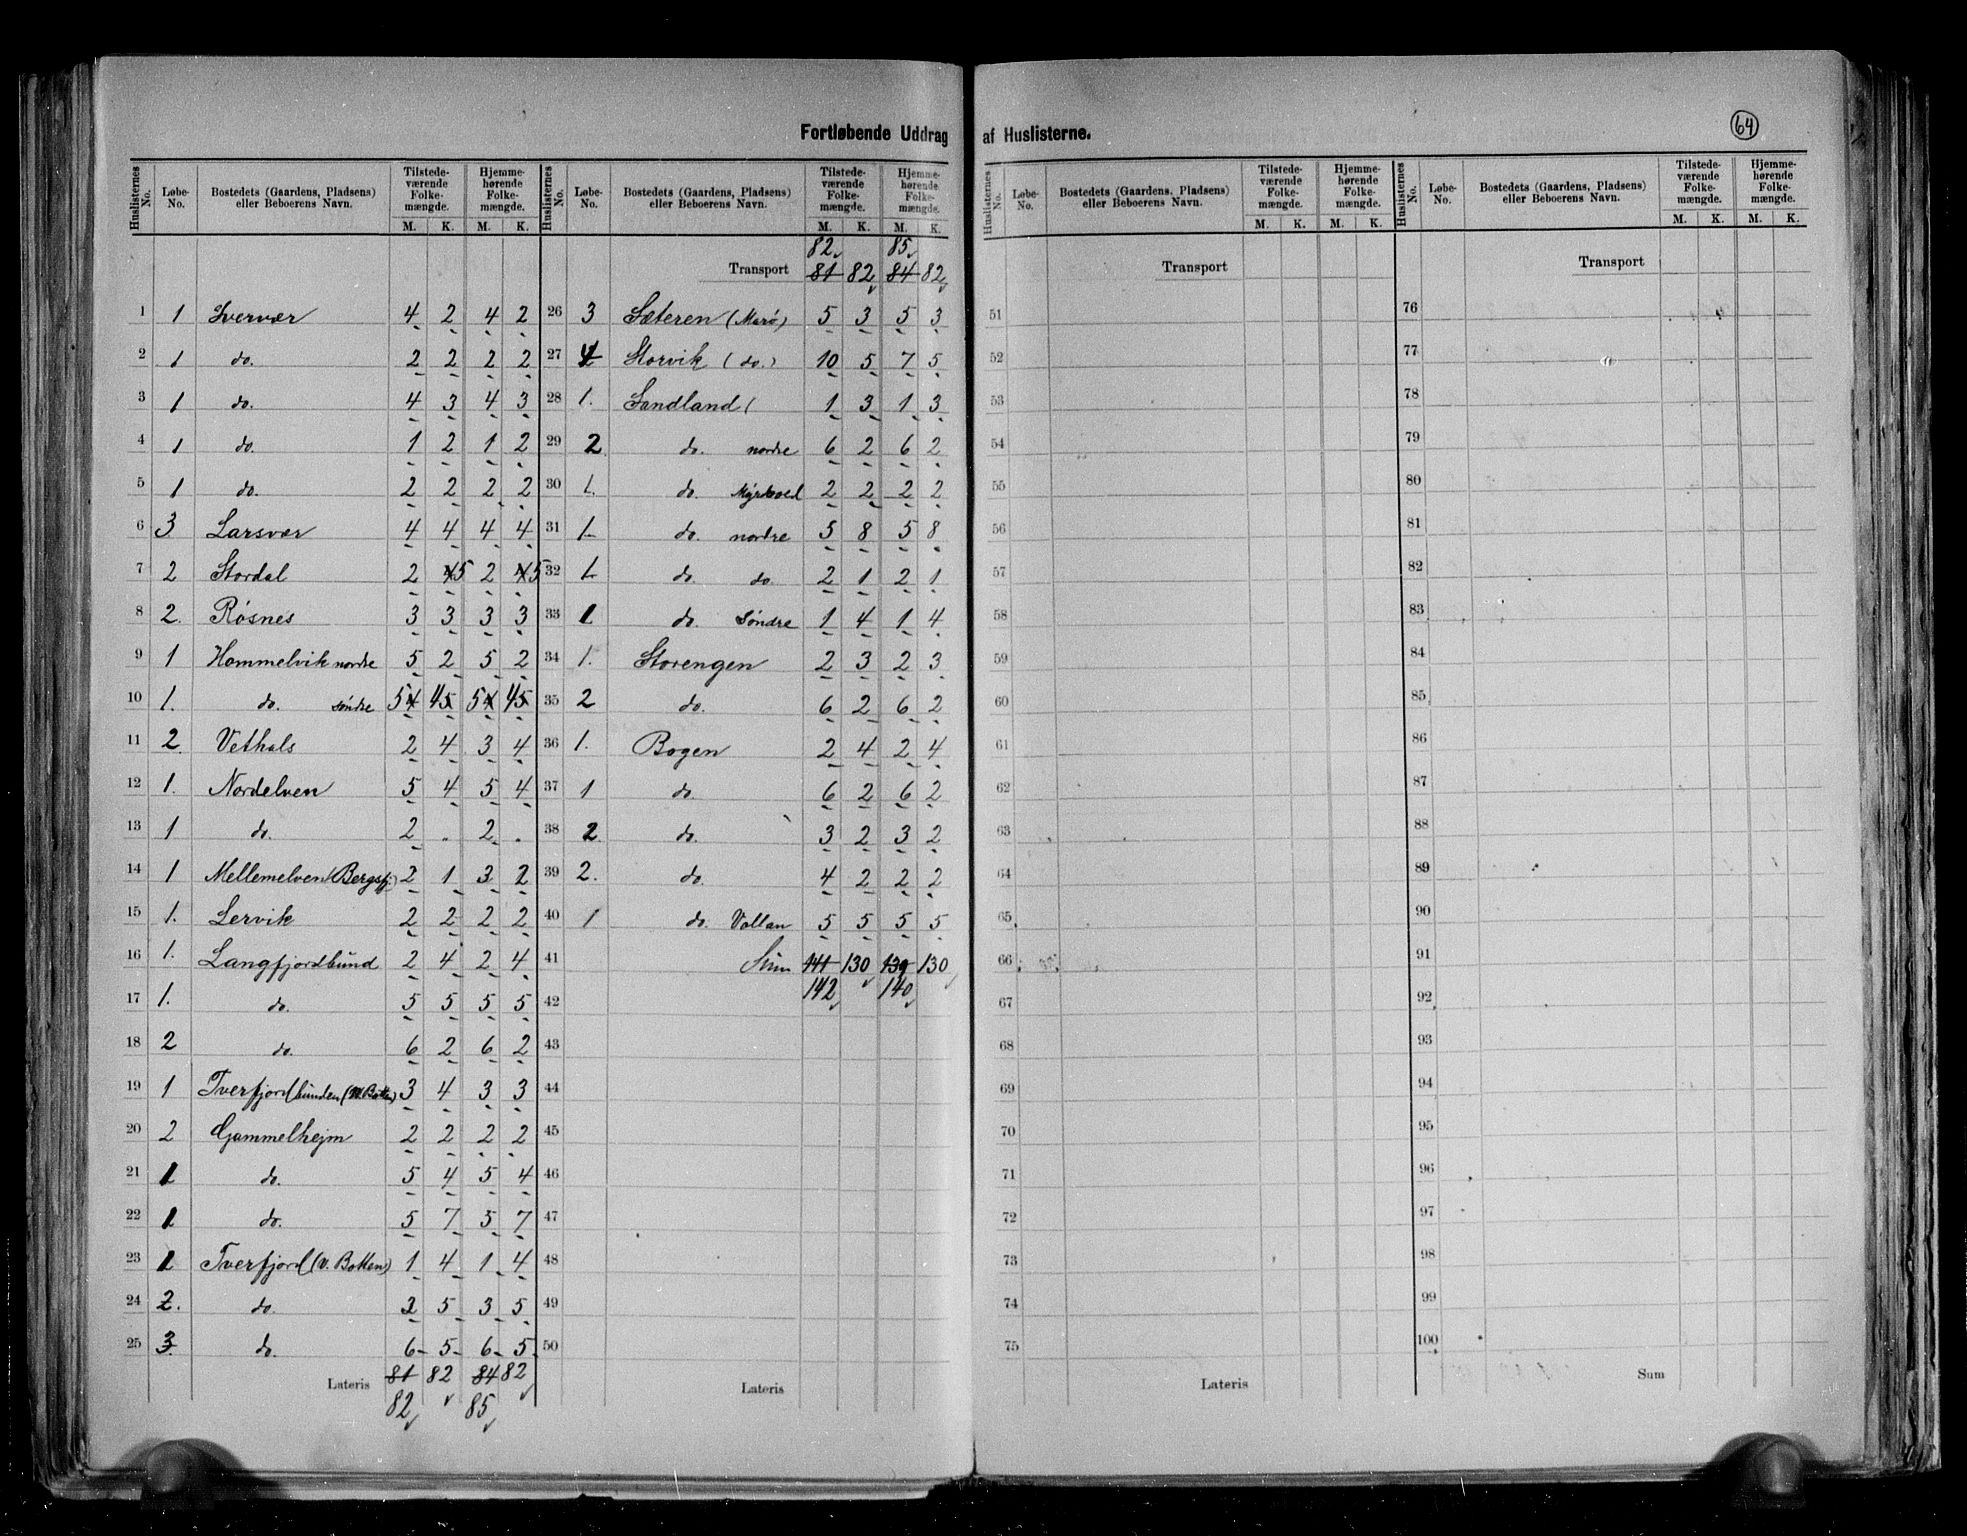 Fortløbende Uddrag af Huslisterne.
64
Huslisternes No. Løbe-No. Bostedets (Gaardens, Pladsens) eller Beboerens Navn. Tilstedeværende Folkemængde. M. K. Hjemmehørende Folkemængde. M. K.
1 1 Ivervær 4 2 4 2
2 1 do. 2 2 2 2
3 1 do. 4 3 4 3
4 1 do. 1 2 1 2
5 1 do. 2 2 2 2
6 3 Larsvær 4 4 4 4
7 2 Stordal 2 4 5 2 4 5
8 2. Røsnes 3 3 3 3
9 1 Hammelvik nordre 5 2 5 2
10 1. do. søndre 5 4 4 5 5 4 4 5
11 2. Vethals 2 4 3 4
12 1. Nordelven 5 4 5 4
13 1 do. 2 . 2 .
14 1 Mellemelven (Bergsfj.) 2 1 3 2
15 1. Lervik 2 2 2 2
16 1. Langfjordbund 2 4 2 4
17 1. do. 5 5 5 5
18 2 do. 6 2 6 2
19 1 Tverfjordbunden (V. Botten) 3 4 3 3
20 2 Gammelhejm 2 2 2 2
21 1 do. 5 4 5 4
22 1 do. 5 7 5 7
23 1 Tverfjord (V. Botten) 1 4 1 4
24 2. do. 2 5 3 5
25 3. do. 6 5 6 5
Lateris 81 82 84 82
82 85
Huslisternes No. Løbe-No. Bostedets (Gaardens, Pladsens) eller Beboerens Navn. Tilstedeværende Folkemængde. M. K. Hjemmehørende Folkemængde. M. K.
82 85
Transport 81 82 84 82
26 3 Sæteren (Marø) 5 3 5 3
27 4 Storvik (do.) 10 5 7 5
28 1. Sandland ( 1 3 1 3
29 2 do. nordre 6 2 6 2
30 1. do. Myrkvold 2 2 2 2
31 1 do. nordre 5 8 5 8
32 1 do. do. 2 1 2 1
33 1 do. Søndre 1 4 1 4
34 1. Storengen 2 3 2 3
35 2 do. 6 2 6 2
36 1. Bogen 2 4 2 4
37 1 do. 6 2 6 2
38 2 do. 3 2 3 2
39 2. do. 4 2 2 2
40 1 do. Vollan 5 5 5 5
41 Sum 141 130 139 130
42 142 140
43
44
45
46
47
48
49
50
Lateris
Huslisternes No. Løbe-No. Bostedets (Gaardens, Pladsens) eller Beboerens Navn. Tilstedeværende Folkemængde. M. K. Hjemmehørende Folkemængde. M. K.
Transport
51
52
53
54
55
56
57
58
59
60
61
62
63
64
65
66
67
68
69
70
71
72
73
74
75
Lateris
Huslisternes No. Løbe-No. Bostedets (Gaardens, Pladsens) eller Beboerens Navn. Tilstedeværende Folkemængde. M. K. Hjemmehørende Folkemængde. M. K.
Transport
76
77
78
79
80
81
82
83
84
85
86
87
88
89
90
91
92
93
94
95
96
97
98
99
100
Sum